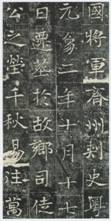 國將軍齊州刺史
元象二年十月十七
日遷葬於故鄉司徒
公之塋千秋易往萬